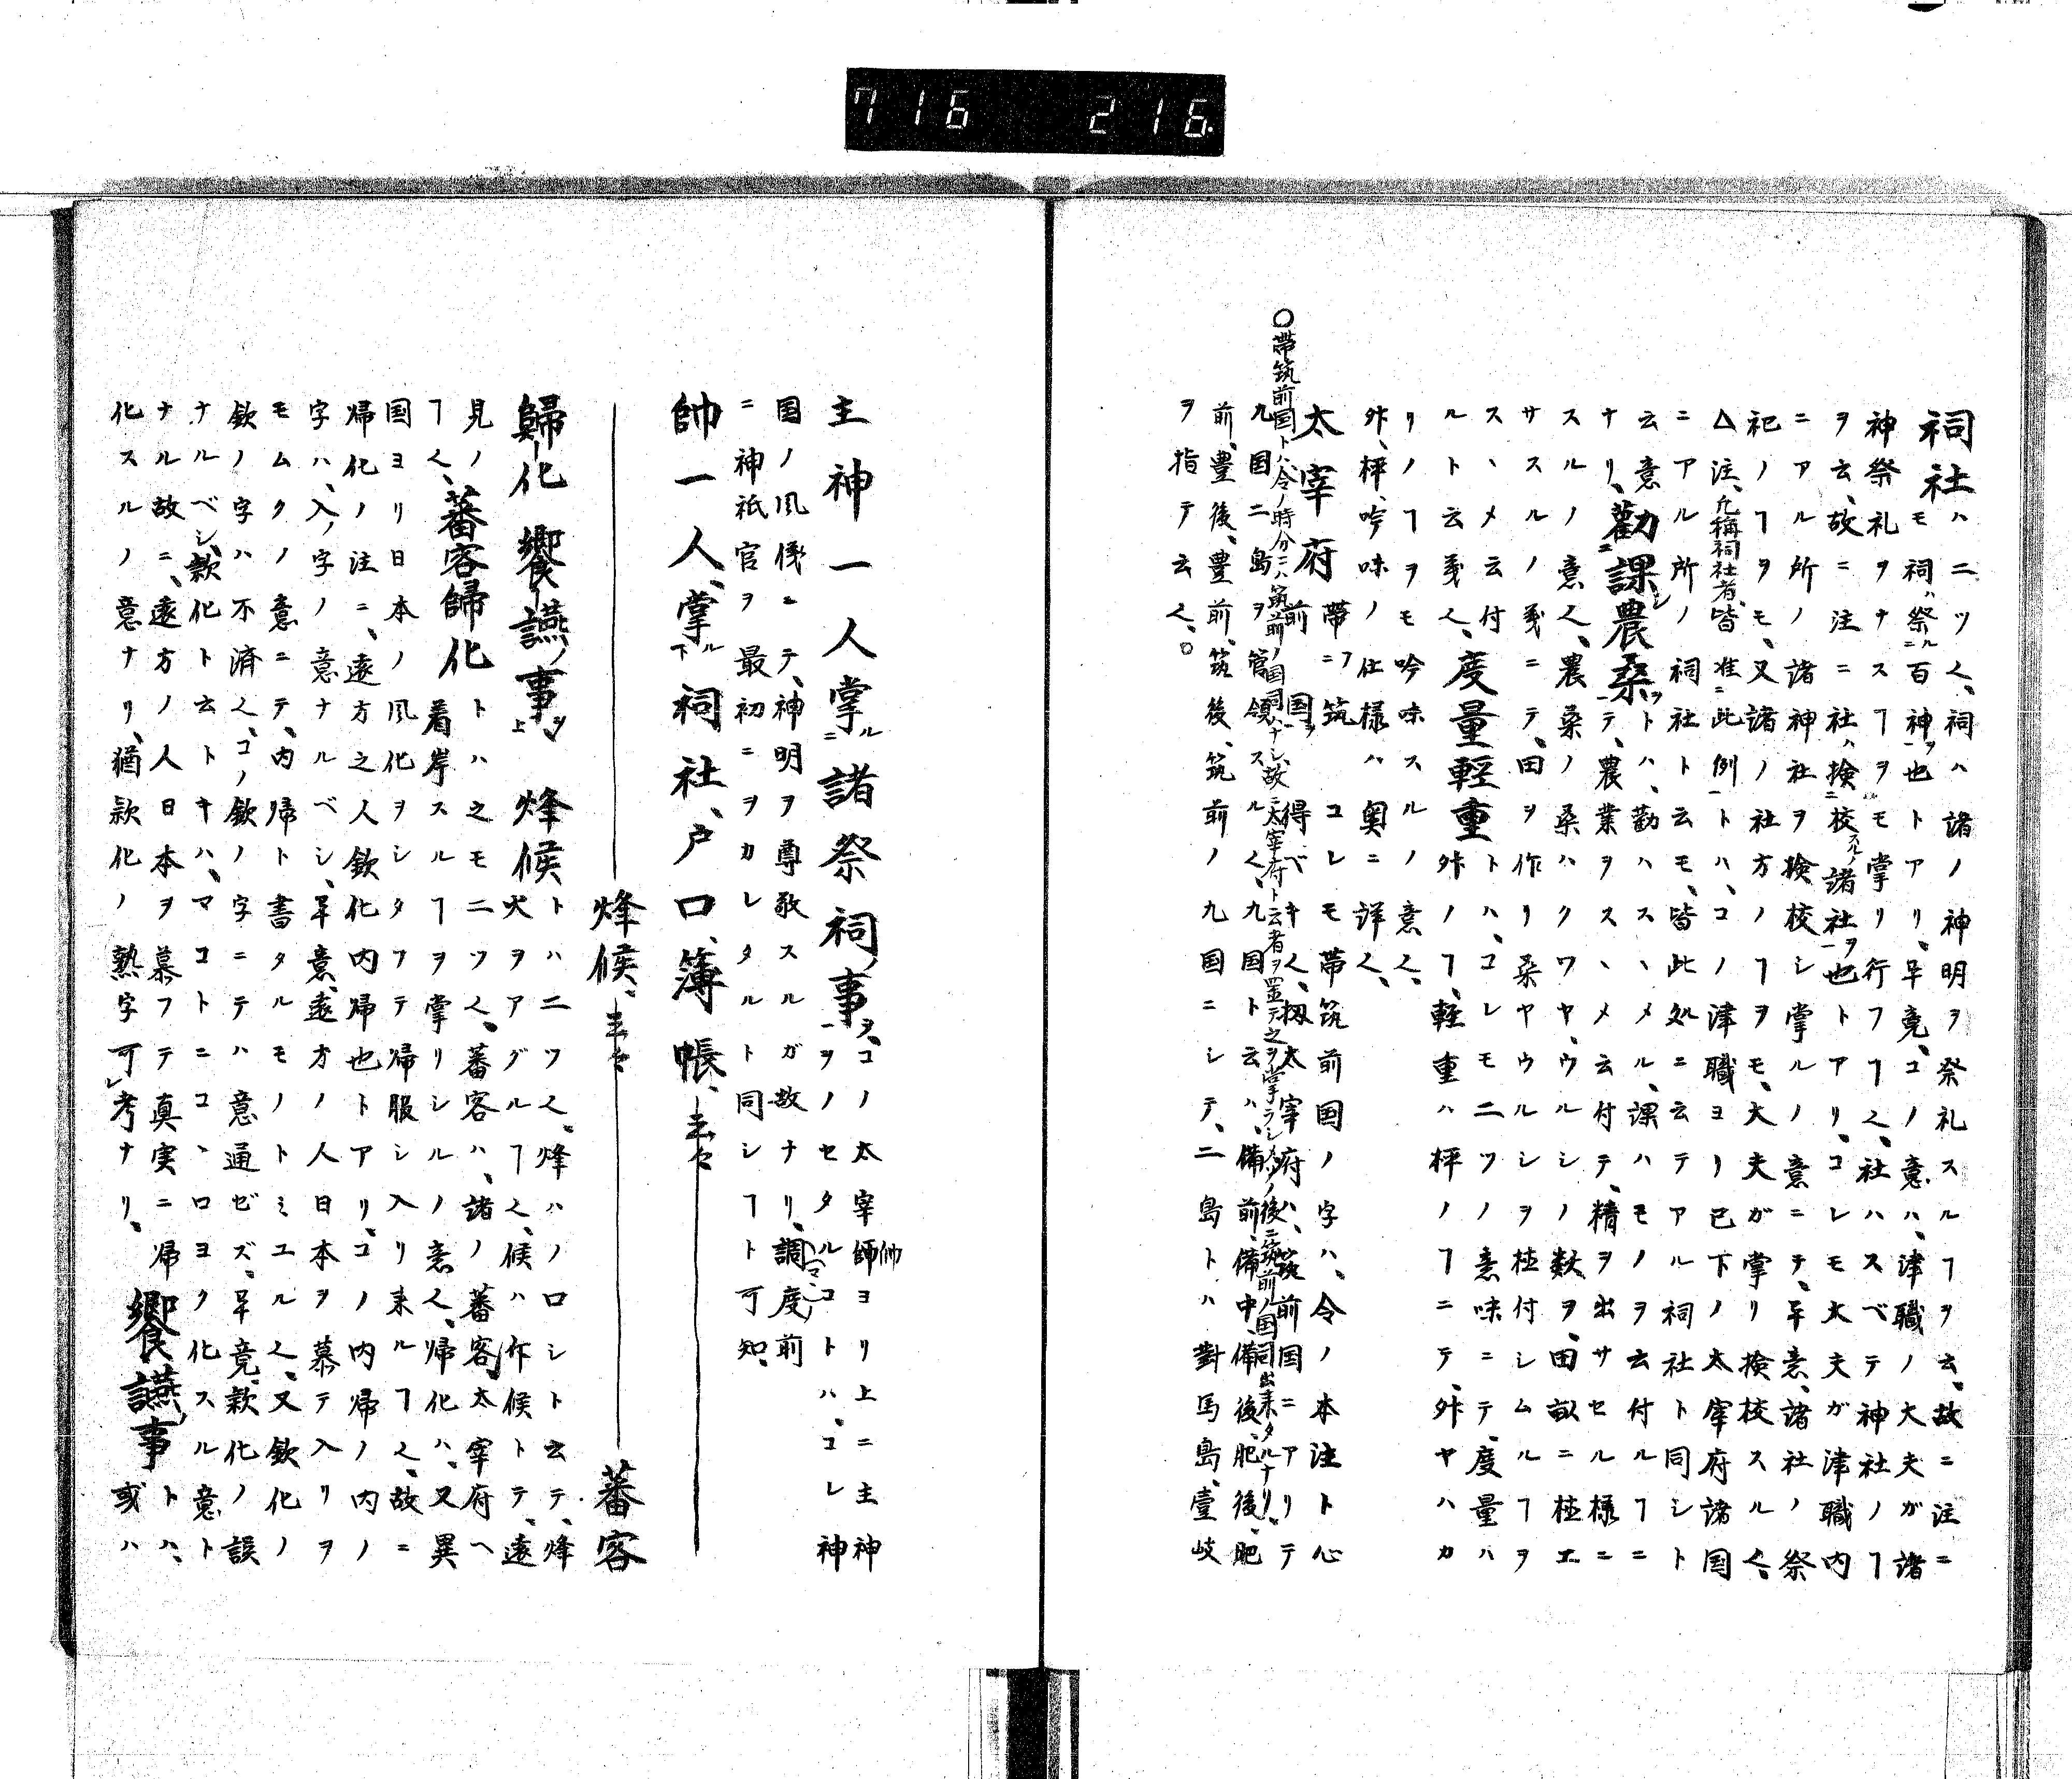 716 216.
祠社ハ二ツ𪜈、祠ハ諸ノ神明ヲ祭礼スルヿヲ云、故ニ注ニ
モ祠ハ祭ル二百神ヲ一也トアリ、畢竟、コノ意ハ、津職ノ大夫ガ諸
神祭礼ヲナスヿヲモ掌リ行フヿ也、社ハスベテ神社ノヿ
ヲ云、故ニ注ニ社ハ検二校スルノ諸社ヲ一也トアリ、コレモ大夫ガ津職内
ニアル所ノ諸神社ヲ検校シ掌ルノ意ニテ、畢意、諸社ノ祭
祀ノヿヲモ、又諸ノ社方ノヿヲモ、大夫ガ掌リ検校スル也、
△注、凢稱祠社者、皆准二此例一トハ、コノ津職ヨリ已下ノ太宰府諸国
ニアル所ノ祠社ト云モ、皆此処ニ云テアル祠社ト同シト
云意ナリ、勸二課シ農桑ヲ一トハ、勸ハスヽメル、課ハモノヲ云付ルヿニ
テ、農業ヲスヽメ云付テ、精ヲ出サセル様ニ
スルノ意也、農桑ノ桑ハクワヤ、ウルシノ数ヲ、田畝ニ植エ
サスルノ義ニテ、田ヲ作リ桑ヤウルシヲ植付シムルヿヲ
スヽメ云付ルト云義也、度量輕重トハ、コレモ二ツノ意味ニテ、度量ハ
外ノヿ、軽重ハ枰ノヿニテ、外ヤハカ
リノヿヲモ吟味スルノ意也、
外、枰、吟味ノ仕様ハ奥ニ詳也、
太宰府帯二フ筑コレモ帯筑前国ノ字ハ、令ノ本注ト心
前国ヲ一得ベキ也、扨太宰府ハ、筑前国ニアリテ
○帯筑前国トハ、令ノ時分ニハ筑前ノ国司ハナシ、故ニ太宰府ト云者ヲ置テ之ヲ掌ラシメ、ソノ後ニ筑前ノ国司出来タルナリ、
九国二島ヲ管領スル也、九国ト云ハ、備前、備中、備後、肥後、肥
前、豊後、豊前、筑後、筑前ノ九国ニシテ、二島トハ對馬島、壹岐
ヲ指テ云也、○
主神一人掌ル二諸祭祠ノ事ヲ一、コノ太宰師帥ヨリ上ニ主神
ヲノセタル(マヽ)コトハ、コレ神
国ノ風儀ニテ、神明ヲ尊敬スルガ故ナリ、調度前
ニ神祇官ヲ最初ニヲカレタルト同シヿト可知、
帥一人、掌ル下祠社、戸口、簿帳、云々
烽候、云々 蕃客
歸化饗讌ノ事ヲ上、烽候トハ二ツ也、烽ハノロシト云テ、烽
火ヲアグルヿ也、候ハ作候トテ、遠
見ノヿ也、蕃客歸化トハ之モ二ツ也、蕃客ハ、諸ノ蕃客太宰府ヘ
着岸スルヿヲ掌リシルノ意也、帰化ハ、又異
国ヨリ日本ノ風化ヲシタフテ帰服シ入リ来ルヿ也、故ニ
帰化ノ注ニ、遠方之人欽化内帰也トアリ、コノ内帰ノ内ノ
字ハ、入ノ字ノ意ナルベシ、畢意、遠方ノ人日本ヲ慕テ入リヲ
モムクノ意ニテ、内帰ト書タルモノトミユル也、又欽化ノ
欽ノ字ハ不済也、コノ欽ノ字ニテハ意通ゼズ、畢竟、款化ノ誤
ナルベシ、款化ト云トキハ、マコトニコヽロヨク化スル意ト
ナル故ニ、遠方ノ人日本ヲ慕フテ真実ニ帰 饗讌ノ事トハ、
化スルノ意ナリ、猶款化ノ熟字可レ考ナリ、 或ハ